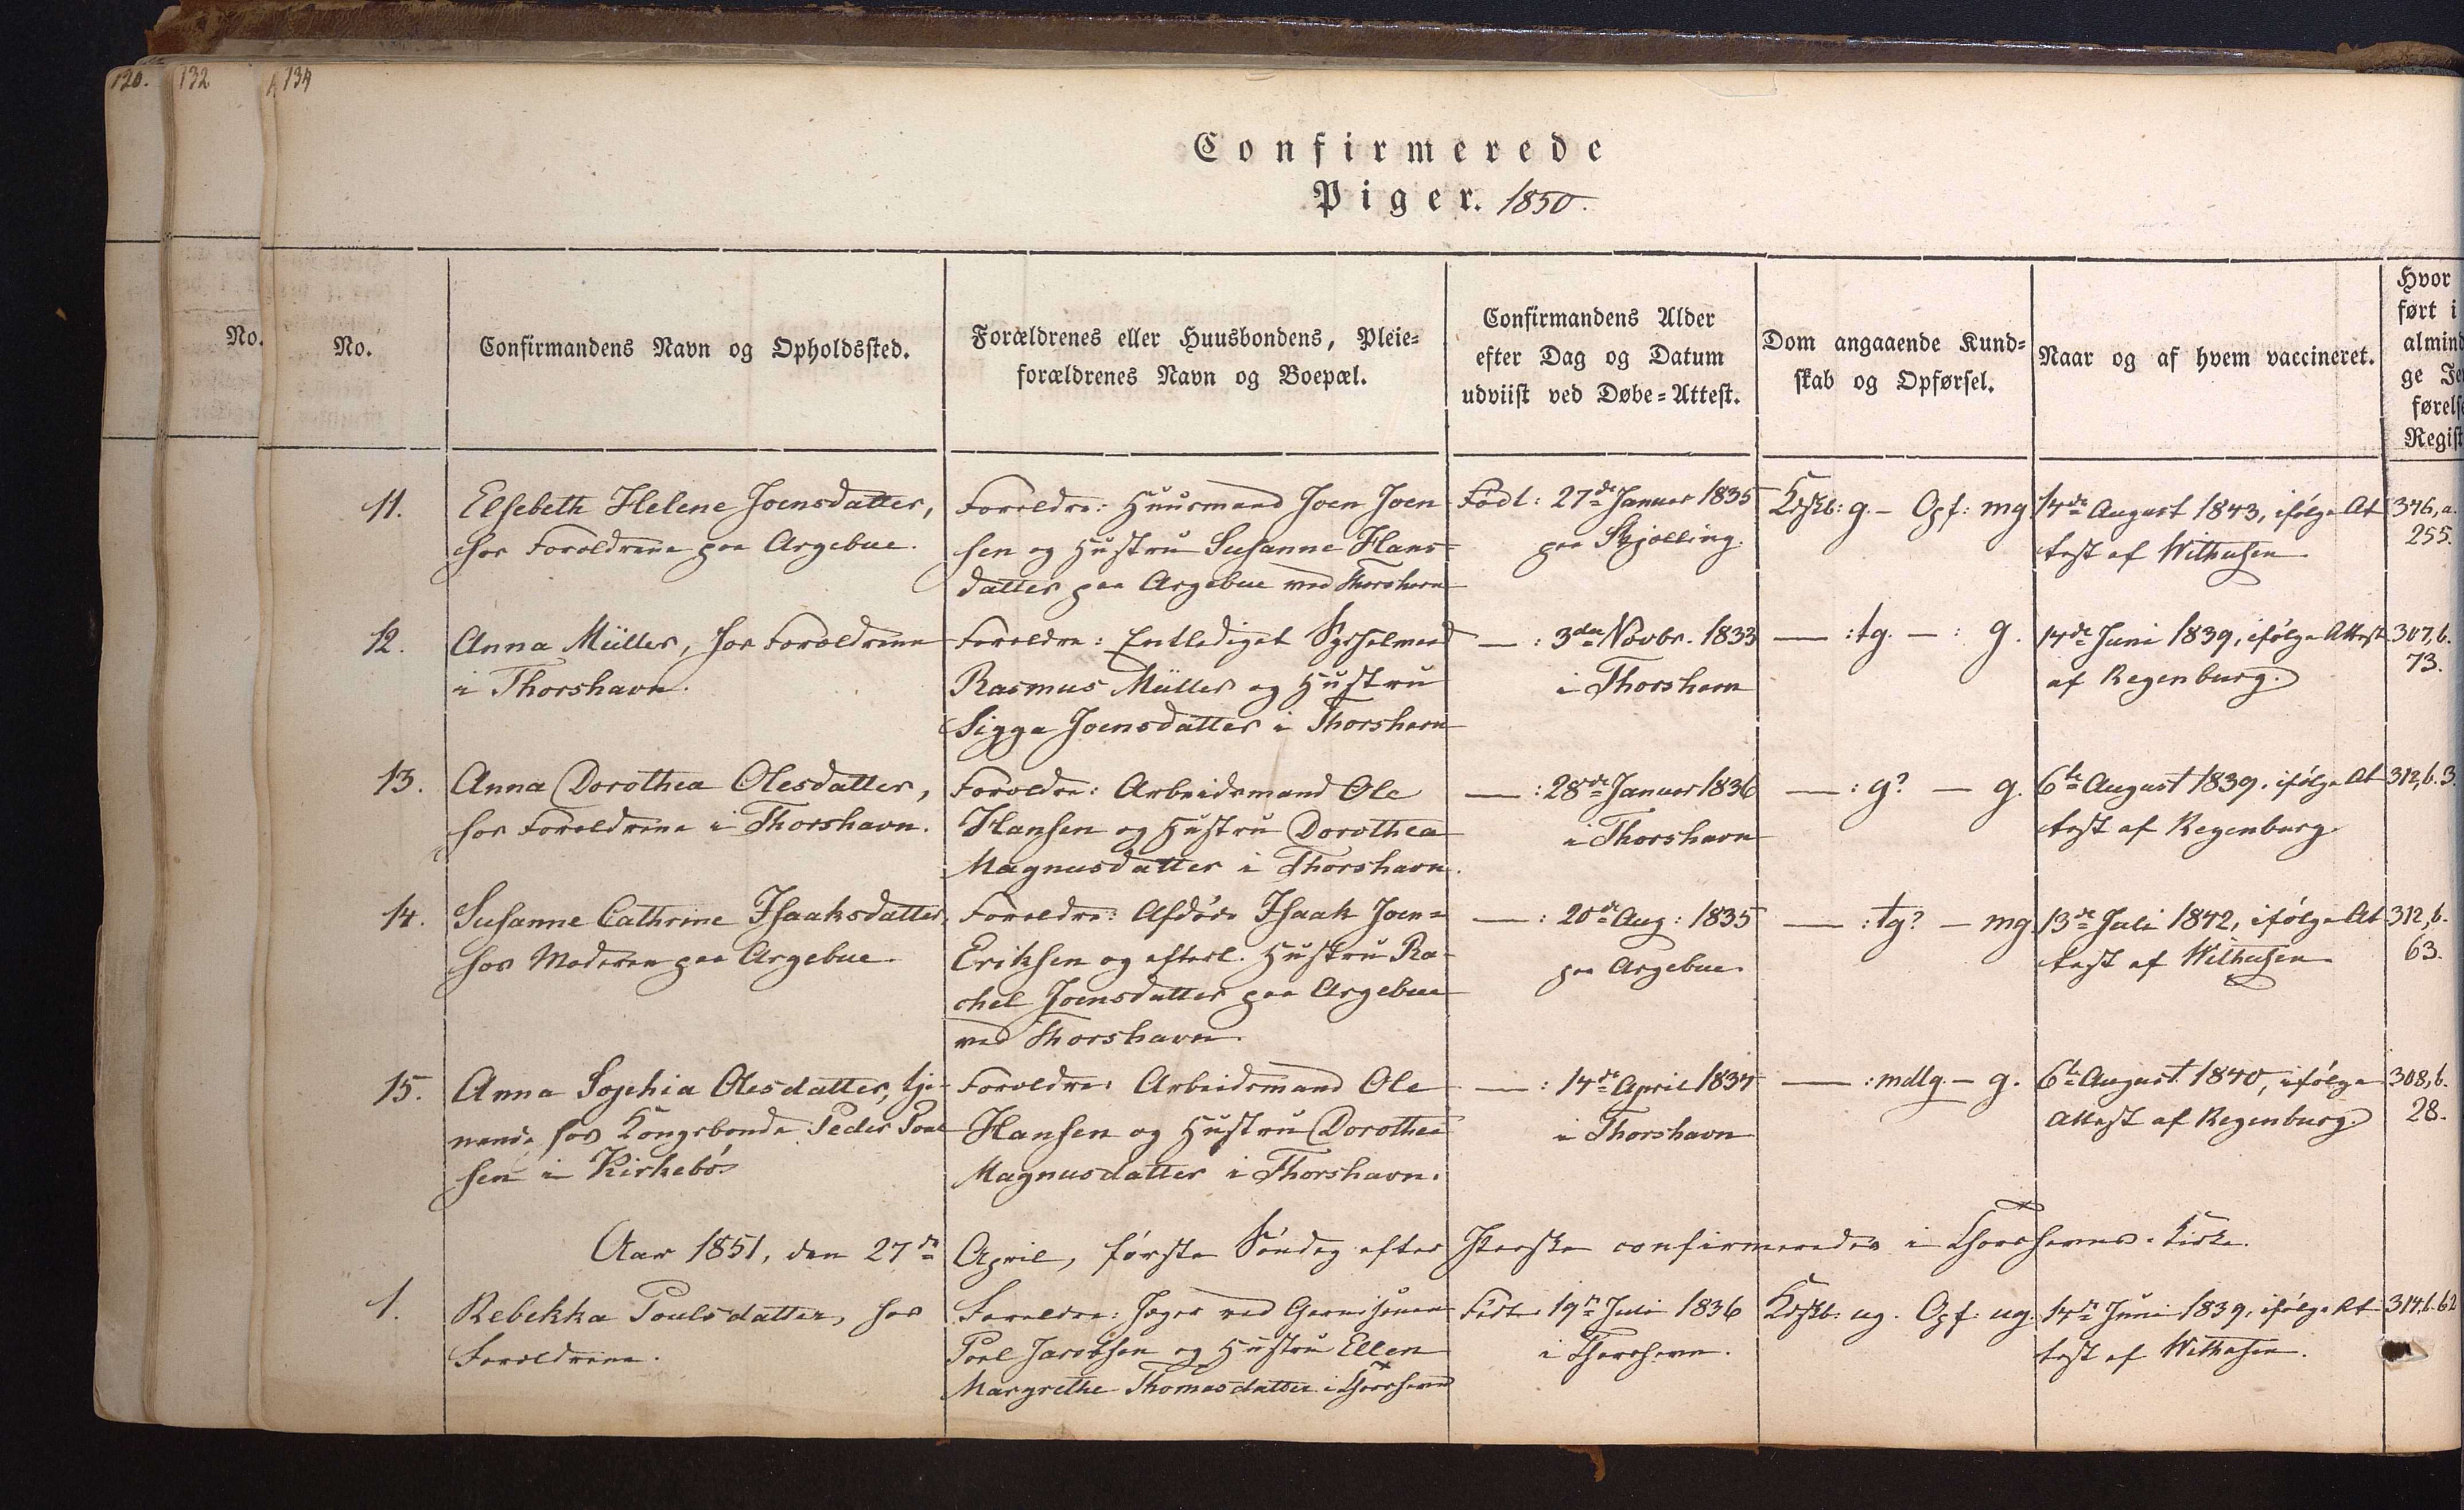 120.
132
134
Confirmerede
Piger. 1850.
No.
No.
Confirmandens Navn og Opholdssted.
Forældrenes eller Huusbondens, Pleie-
forældrenes Navn og Boepæl.
Confirmandens Alder
efter Dag og Datum
udviist ved Døbe-Attest.
Dom angaaende Kund-
skab og Opførsel.
Naar og af hvem vaccineret.
Hvor
ført i
almind
ge Je
førels
Regist
11.
Elsebeth Helene Joensdatter,
hos Forældrene paa Argebue.
Forældre: Huusmand Joen Joen
sen og Hustru Susanne Hans-
datter paa Argebue ved Thorshavn
Født: 27de Januar 1835
paa Skjælling.
Kdskb: g. - Opf: mg
14de August 1843, ifølge At
test af Withusen
376, a.
255.
12.
Anna Müller, hos Forældrene
i Thorshavn.
Forældre: Entlediget Sysselmand
Rasmus Müller og Hustru
Sigga Joensdatter i Thorshavn
— : 3die Novbr. 1833
i Thorshavn
— : tg. — : g.
14de Juni 1839, ifølge Attest
af Regenburg.
307, b.
73.
13.
Anna Dorothea Olesdatter,
hos Forældrene i Thorshavn.
Forældre: Arbeidsmand Ole
Hansen og Hustru Dorothea
Magnusdatter i Thorshavn.
— : 28de Januar 1836
i Thorshavn
— : g? — g.
6te August 1839, ifølge At
test af Regenburg
312, b. 3.
14.
Susanne Cathrine Isaaksdatter,
hos Moderen paa Argebue.
Forældre: Afdøde Isaak Joen-
Eriksen og efterl. Hustru Ra-
chel Joensdatter paa Argebue
ved Thorshavn.
— : 20de Aug: 1835
paa Argebue.
— : tg? — mg.
13de Juli 1842, ifølge At
test af Withusen
312, b.
63.
15.
Anna Sophia Olesdatter, tje-
nende hos Kongsbonde Peder Poul
sen i Kirkebø.
Forældre: Arbeidsmand Ole
Hansen og Hustru Dorothea
Magnusdatter i Thorshavn.
— : 14de April 1834
i Thorshavn
— : mdlg. — g.
6te August 1840, ifølge
Attest af Regenburg.
308, b.
28.
Aar 1851, den 27de April, første Søndag efter Paaske confirmeredes i Thorshavns Kirke.
1.
Rebekka Poulsdatter, hos
Forældrene.
Forældre: Jæger ved Garnisonen
Poul Jacobsen og Hustru Ellen
Margrethe Thomasdatter i Thorshavn
Født 19de Juli 1836
i Thorshavn.
Kdskb: ug. Opf: ug.
14de Juni 1839, ifølge At
test af Withusen.
314, b. 62